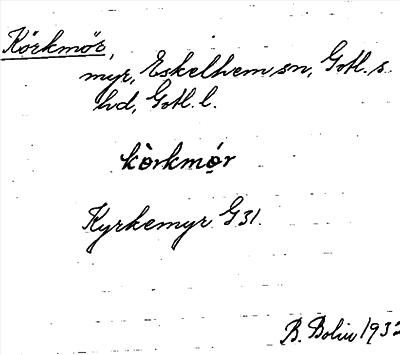 Körkmör,
myr, Eskelhem sn, Gotl. s.
hd, Gotl. l.
kòrkmọ́r
Kyrkemyr G 31.
B. Bolin 1932